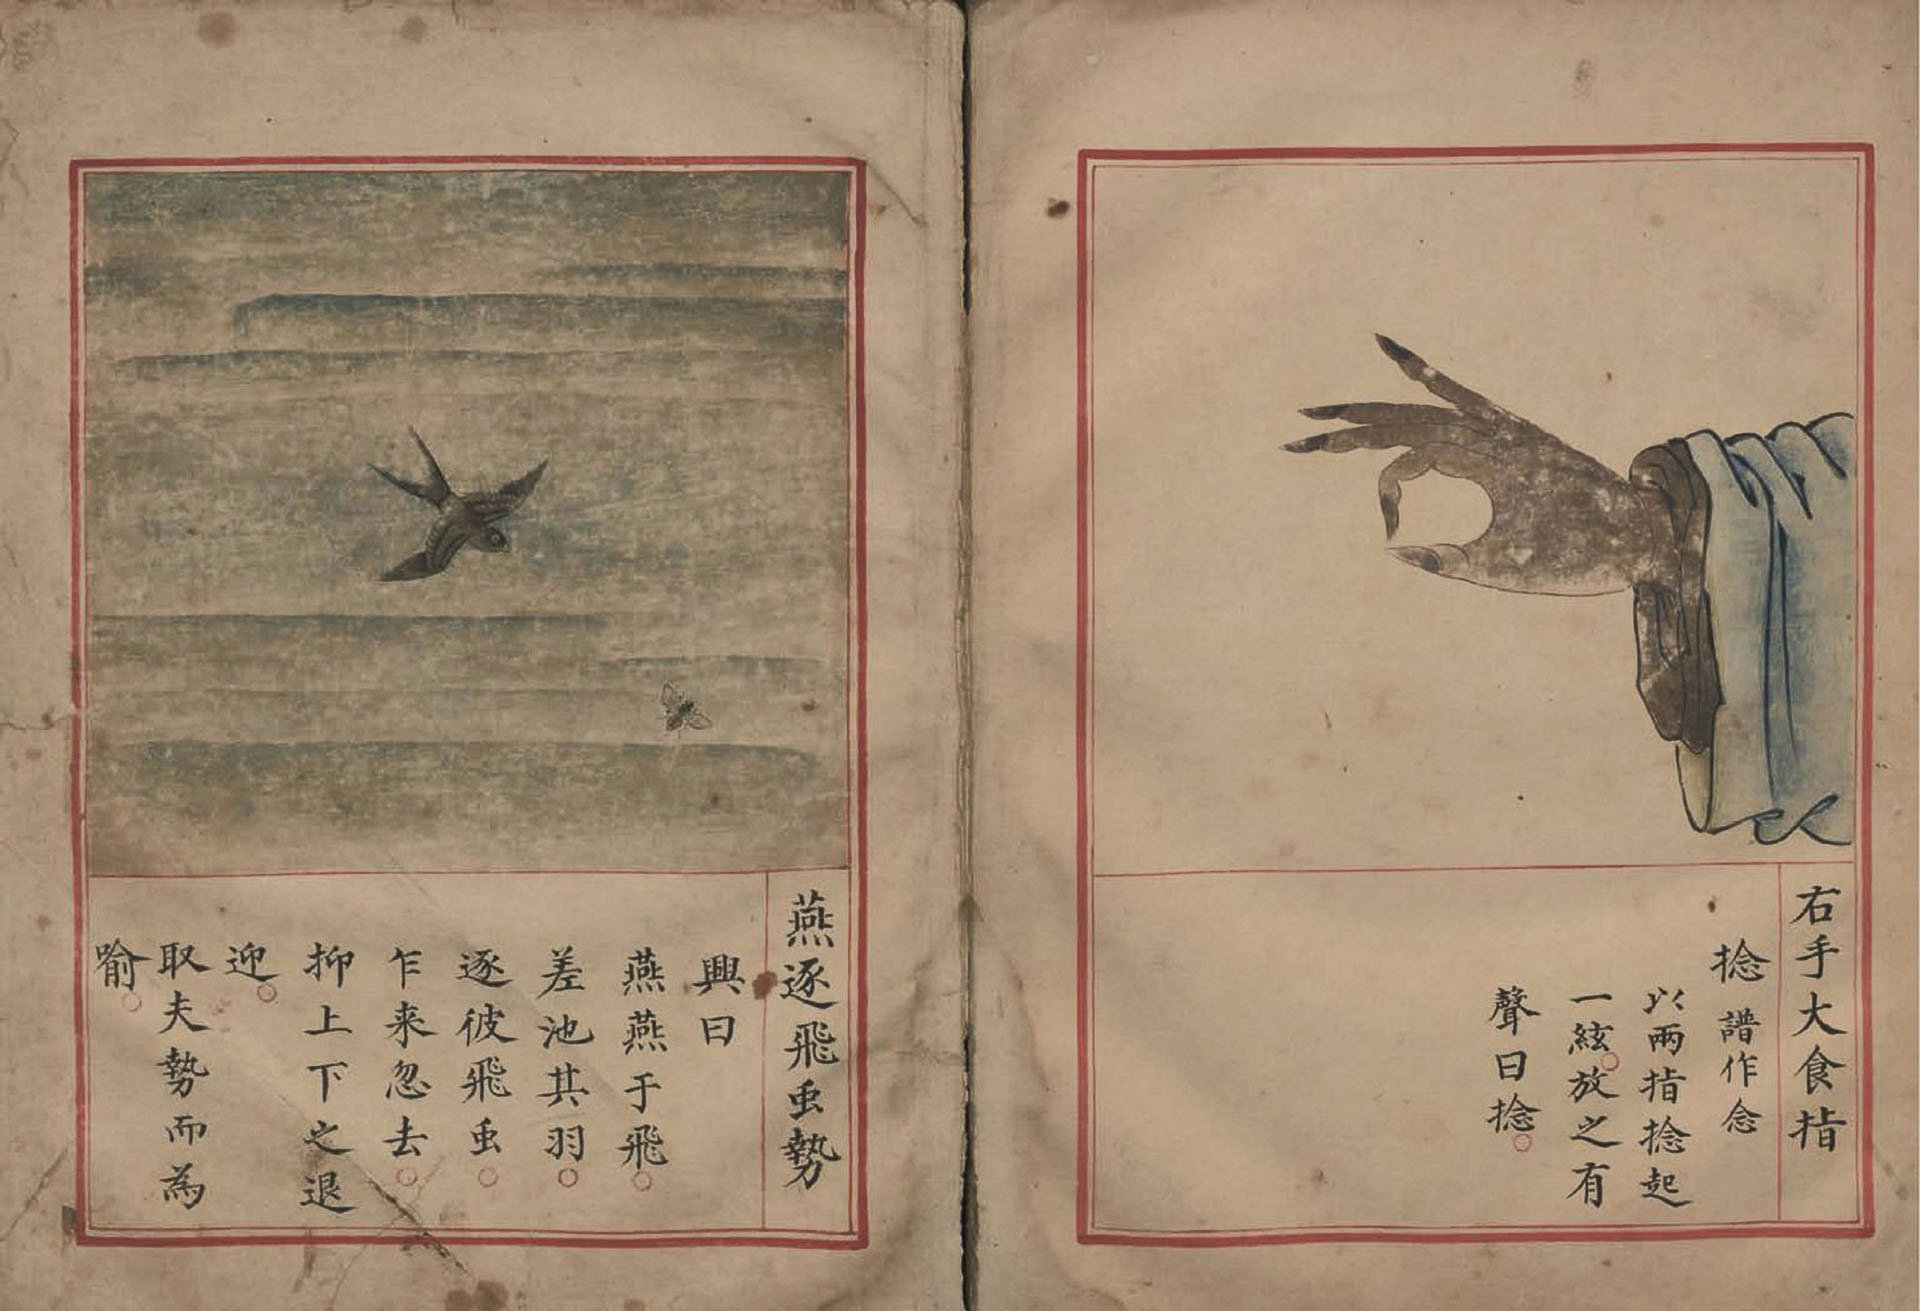 右手大食指
捻 譜作念
以兩指捻起
一絃放之有
聲曰捻
燕逐飛虫勢
興曰
燕燕于飛
差池其羽
逐彼飛虫
乍来忽去
抑上下之退
迎
取夫勢而為
喻